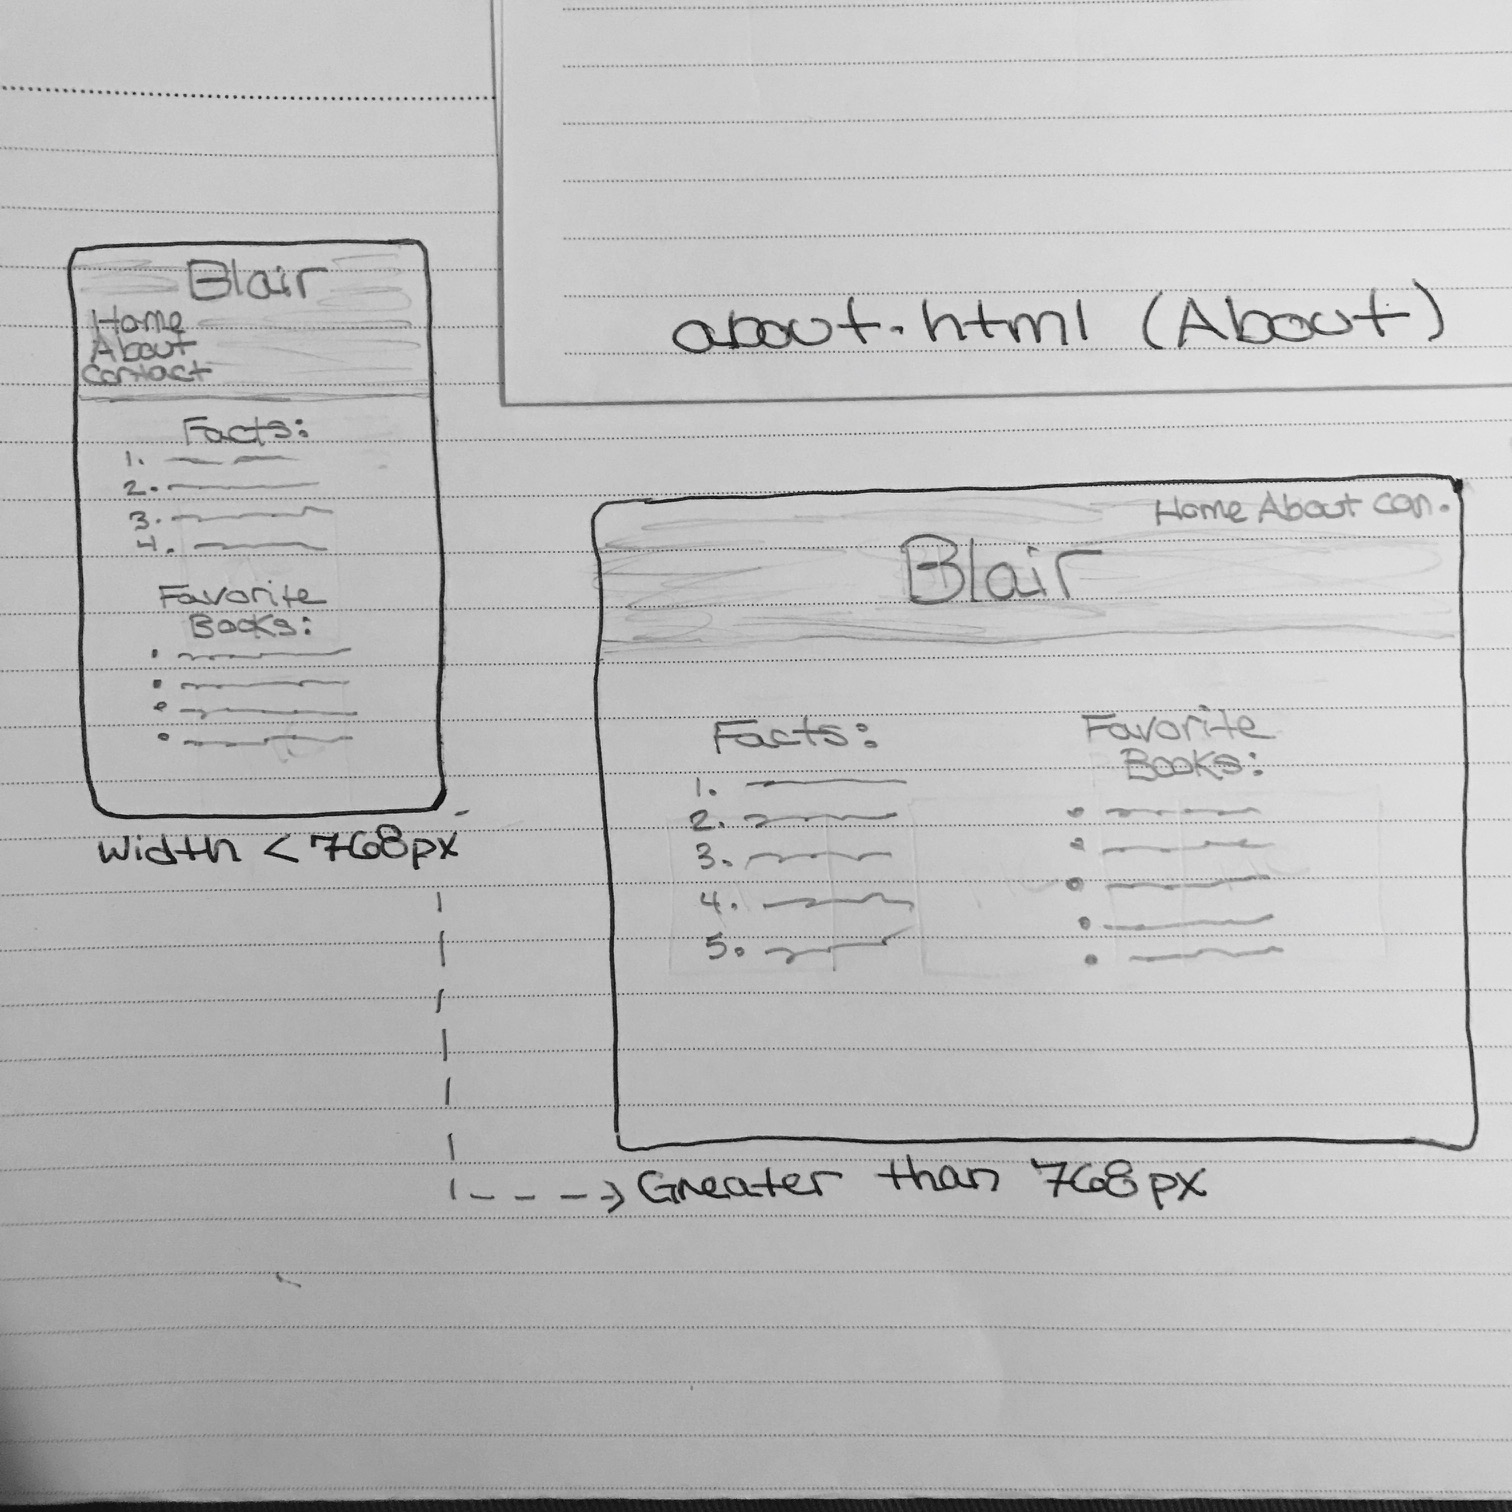 about.html (About)
Blair
Home
About
Contact
Facts:
1.
2.
3.
4.
Favorite
Books:
Width < 768px
Home About Con.
Blair
Facts:
1.
2.
3.
4.
5.
Favorite
Books:
Greater than 768px